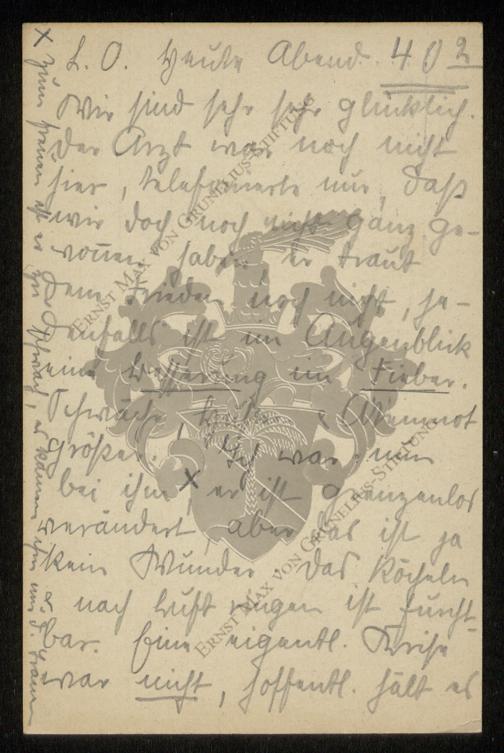 L. O. Heute Abend 40²
Wir sind sehr sehr glücklich.
Der Arzt war noch nicht
hier, telefonierte nur, daß
wir doch noch nicht ganz ge-
wonnen haben er traut
dem Frieden noch nicht, je-
denfalls ist im Augenblick
eine Besserung im Fieber.
Schwäche Atemnot
größer. Ich war nun
bei ihm X er ist grenzenlos
verändert, aber das ist ja
kein Wunder. Das Röcheln
u. nach Luft ringen ist furcht-
bar. Eine eigentl. Krise
war nicht, hoffentl. hält es
X zum freuen ist er zu schwach, er kannte ihn u. d.
ERNST MAX VON GRUNELIUS-STIFTUNG
ERNST MAX VON GRUNELIUS-STIFTUNG